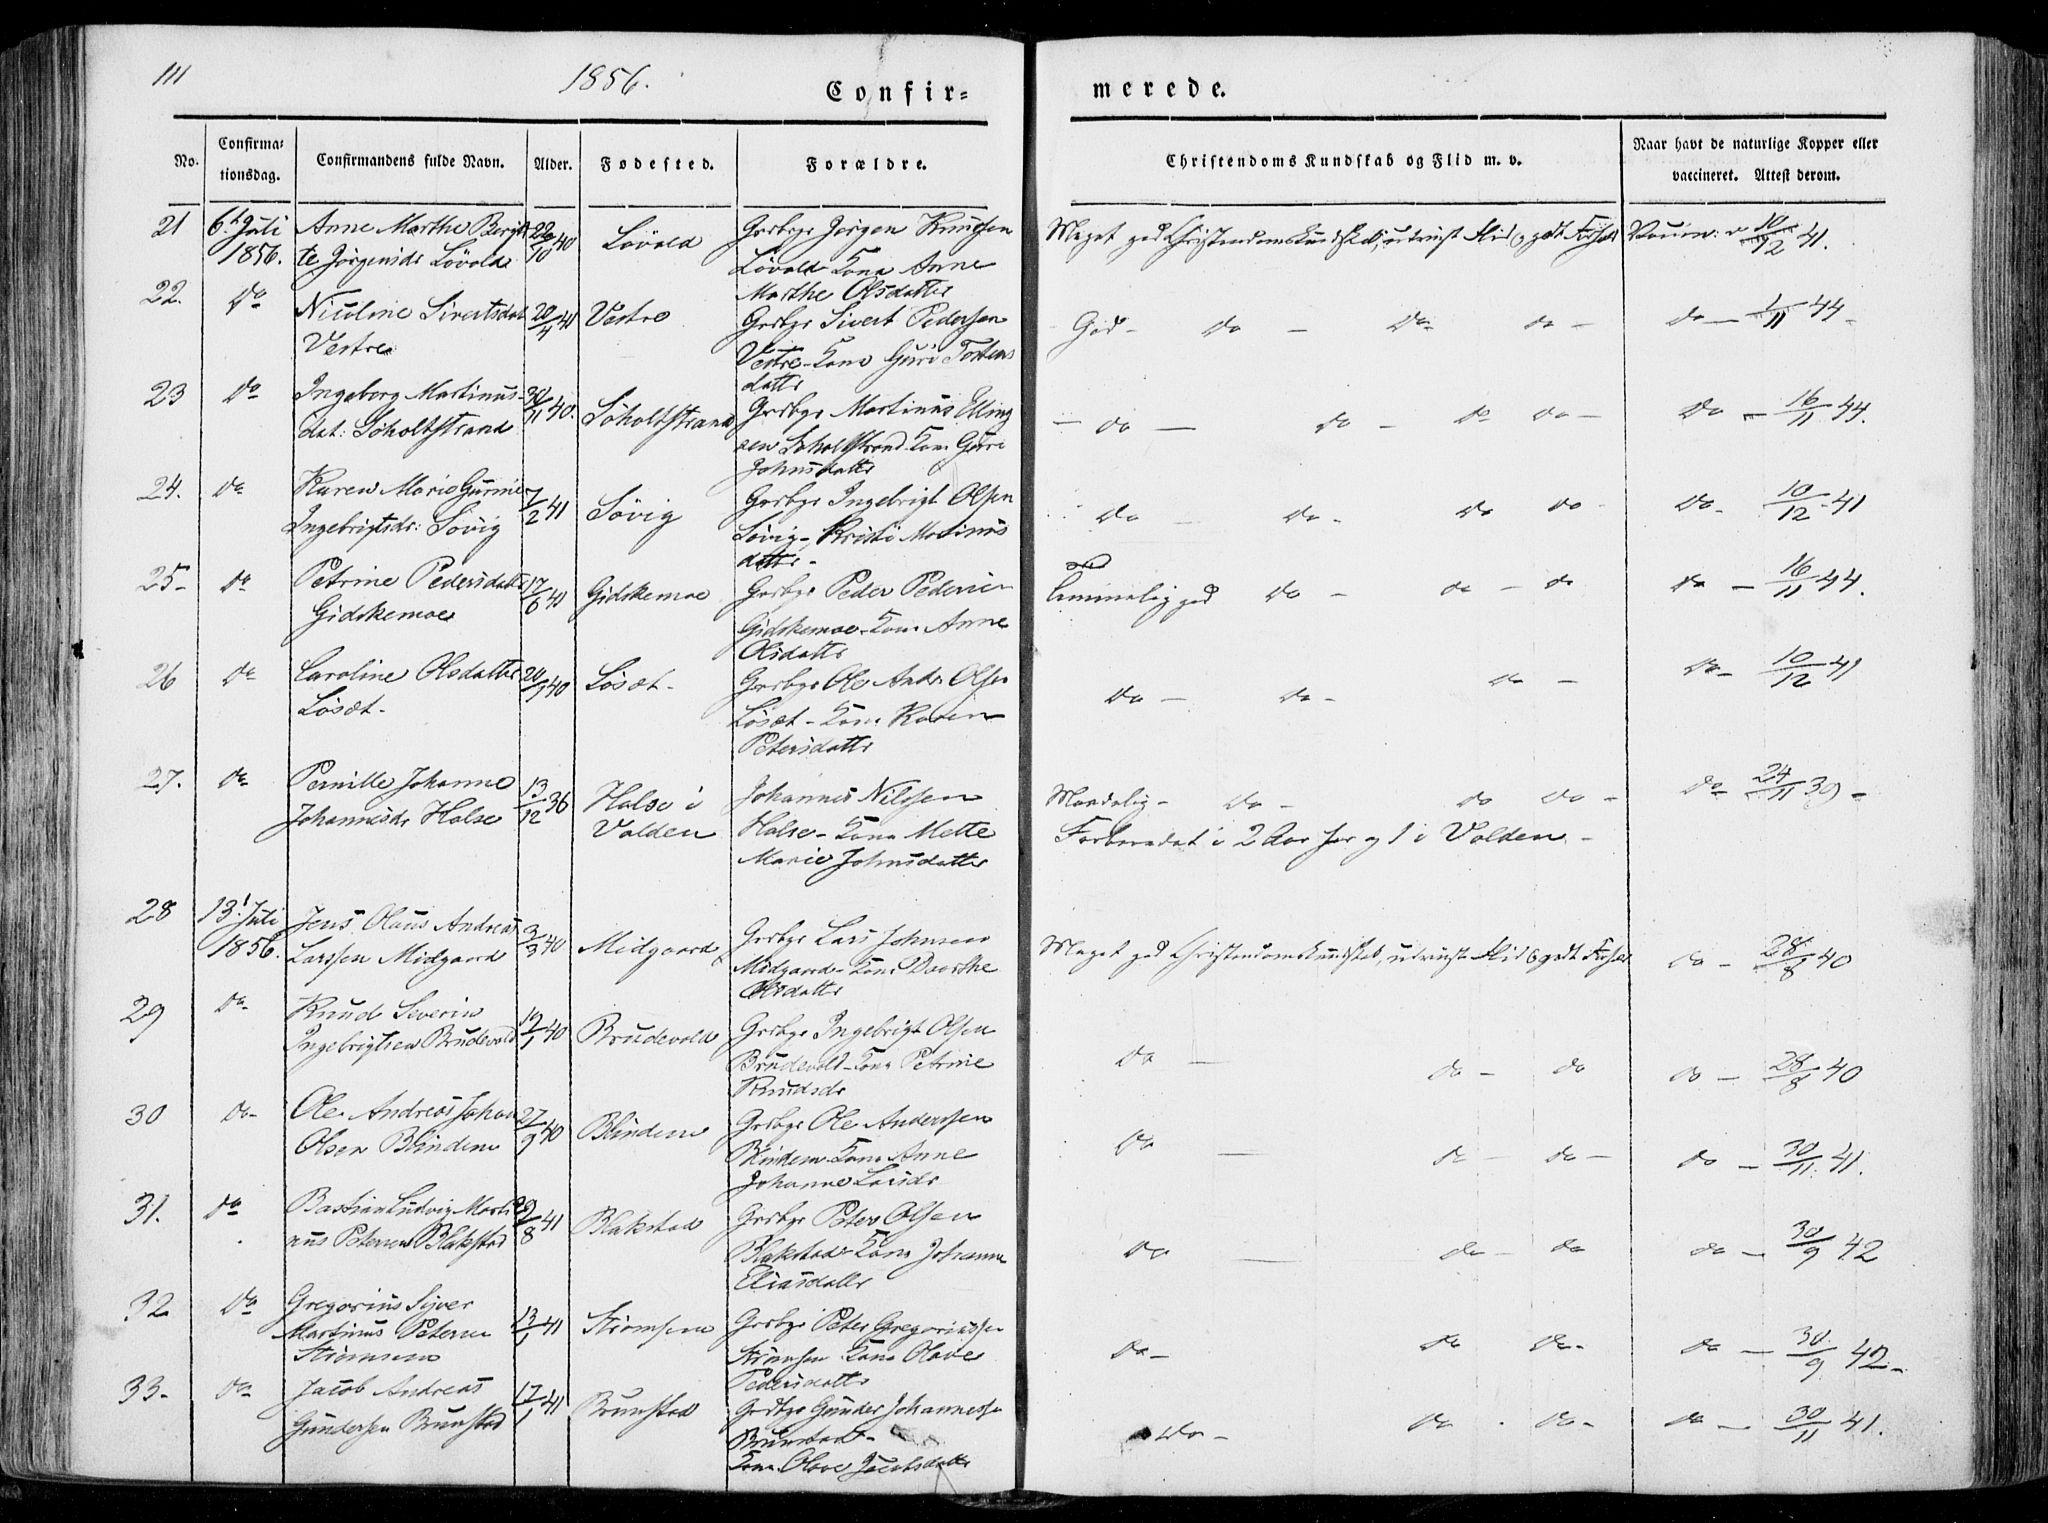 111
1856.
Confir=
merede.
No.
Confirma=
tionsdag.
Confirmandens fulde Navn.
Alder.
Fødested.
Forældre.
Christendoms Kundskab og Flid m. v.
Naar havt de naturlige Kopper eller
vaccineret. Attest derom.
21 6t Juli Anne Marthe Bergit 22/10 40 Løvold Grdbgr Jørgen Knudsen Meget god Christendomskundskab, udviist Flid og godt Forhold Vaccin: 10/12 41.
1856. te Jørgensdr Løvold Løvold Kone Anne
Marthe Olsdatter
22. Do Nicoline Sivertsdat 20/4 41 Vestre Grdbgr Sivert Pedersen God - Do - Do - do - do - 1/11 44 -
Vestre Vestre - Kone Guri Torstens
datter
23 Do Ingeborg Martinus- 30/11 40. Søholtstrand Grdbgr Martinus Elling - do - do - do do - Do - 16/11 44.
dat: Søholtstrand sen Søholtstrand Kone Guri
Johnsdatter
24. Do Karen Marie Gurine 7/2 41 Søvig Grdbgr Ingebrigt Olsen Do Do - Do Do - Do - 10/12 - 41
Ingebrigtsdr: Søvig Søvig - Kristi Martinus
datter -
25 - Do Petrine Pedersdatter 17/6 41 Gidskemoe Grdbgr Peder Pedersen Temmelig god Do - do - do do - 16/11 44.
Gidskemoe Gidskemoe Kone Anne
Olsdatter
26 Do Caroline Olsdatter 20/9 40 Løsæt - Grdbgr Ole Andr. Olsen Do - do - do - Do - 10/12 41
Løsæt - Løsæt - Kone Karen
Petersdatter
27. Do Pernille Johanne 13/12 36 Halse i Johannes Nilssen Maadelig - Do - do do - Do 24/11 39 -
Johannesdr Halse Volden Halse - Kone Mette Forberedet i 2 Aar her og 1 i Volden -
Marie Johnsdatter
28 13t Juli Jens Olaus Andreas 3/3 40 Midgaard Grdbgr Lars Johnsen Meget god Christendomskundskab, udviist Flid & godt Forhold do - 28/8 40
1856. Larssen Midgaard Midgaard - Kone Dorthe
Olsdatter
29 Do Knud Severin 19/1 40 Brudevold Grdbgr Ingebrigt Olsen Do - do - do do - 28/8 40
Ingebrigtsen Brudevold Brudevold - Kone Petrine
Knudsdr
30 Do - Ole Andreas Johan 27/9 40 Blindem Grdbgr Ole Anderssen Do do - do - do - 30/11 41.
Olsen Blindem Blindem Kone Anne
Johanne Larsdr
31. Do Bastian Ludvig Marti 29/8 41 Blakstad Grdbgr Peter Olsen Do do - do do - 30/9 42
nus Petersen Blakstad Blakstad Kone Johanne
Eliasdatter
32 Do Gregorius Siver 13/1 41 Strømsem Grdbgr Peter Gregoriussen Do - do do - do - 30/9 42 -
Martinus Petersen Strømsem Kone Olave
Strømsem Pedersdatter
33 - Do Jacob Andreas 17/1 41 Brunstad Grdbgr Gunder Johannessen Do - do do - do - 30/11 41.
Gundersen Brunstad Brunstad -
Kone Olave Jacobsdatter